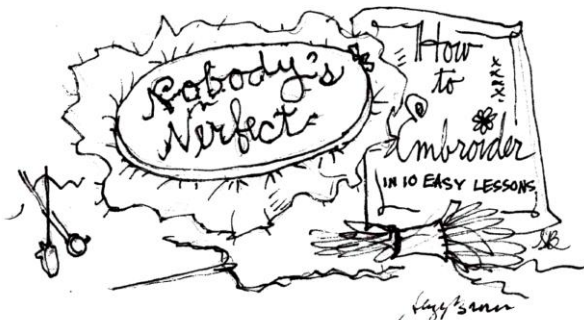 Nobody's
Nerfect
How
to
Embroider
IN 10 EASY LESSONS